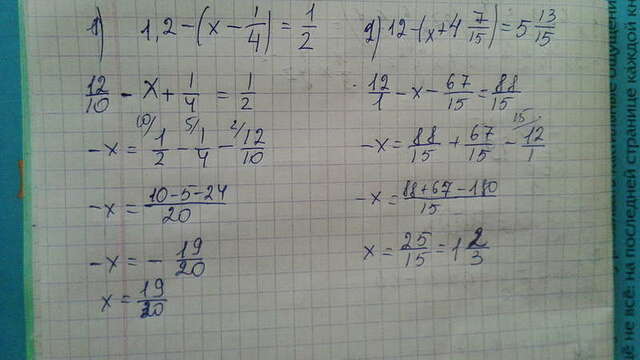 1) 1,2 - (x - 1/4) = 1/2
12/10 - x + 1/4 = 1/2
-x = 10/ 1/2 - 5/ 1/4 - 2/ 12/10
-x = 10-5-24/20
-x = - 19/20
x = 19/20
2) 12 - (x + 4 7/15) = 5 13/15
12/1 - x - 67/15 = 88/15
-x = 88/15 + 67/15 - 15/ 12/1
-x = 88+67-180/15
x = 25/15 = 1 2/3
ё не всё: на последней странице каждой кн